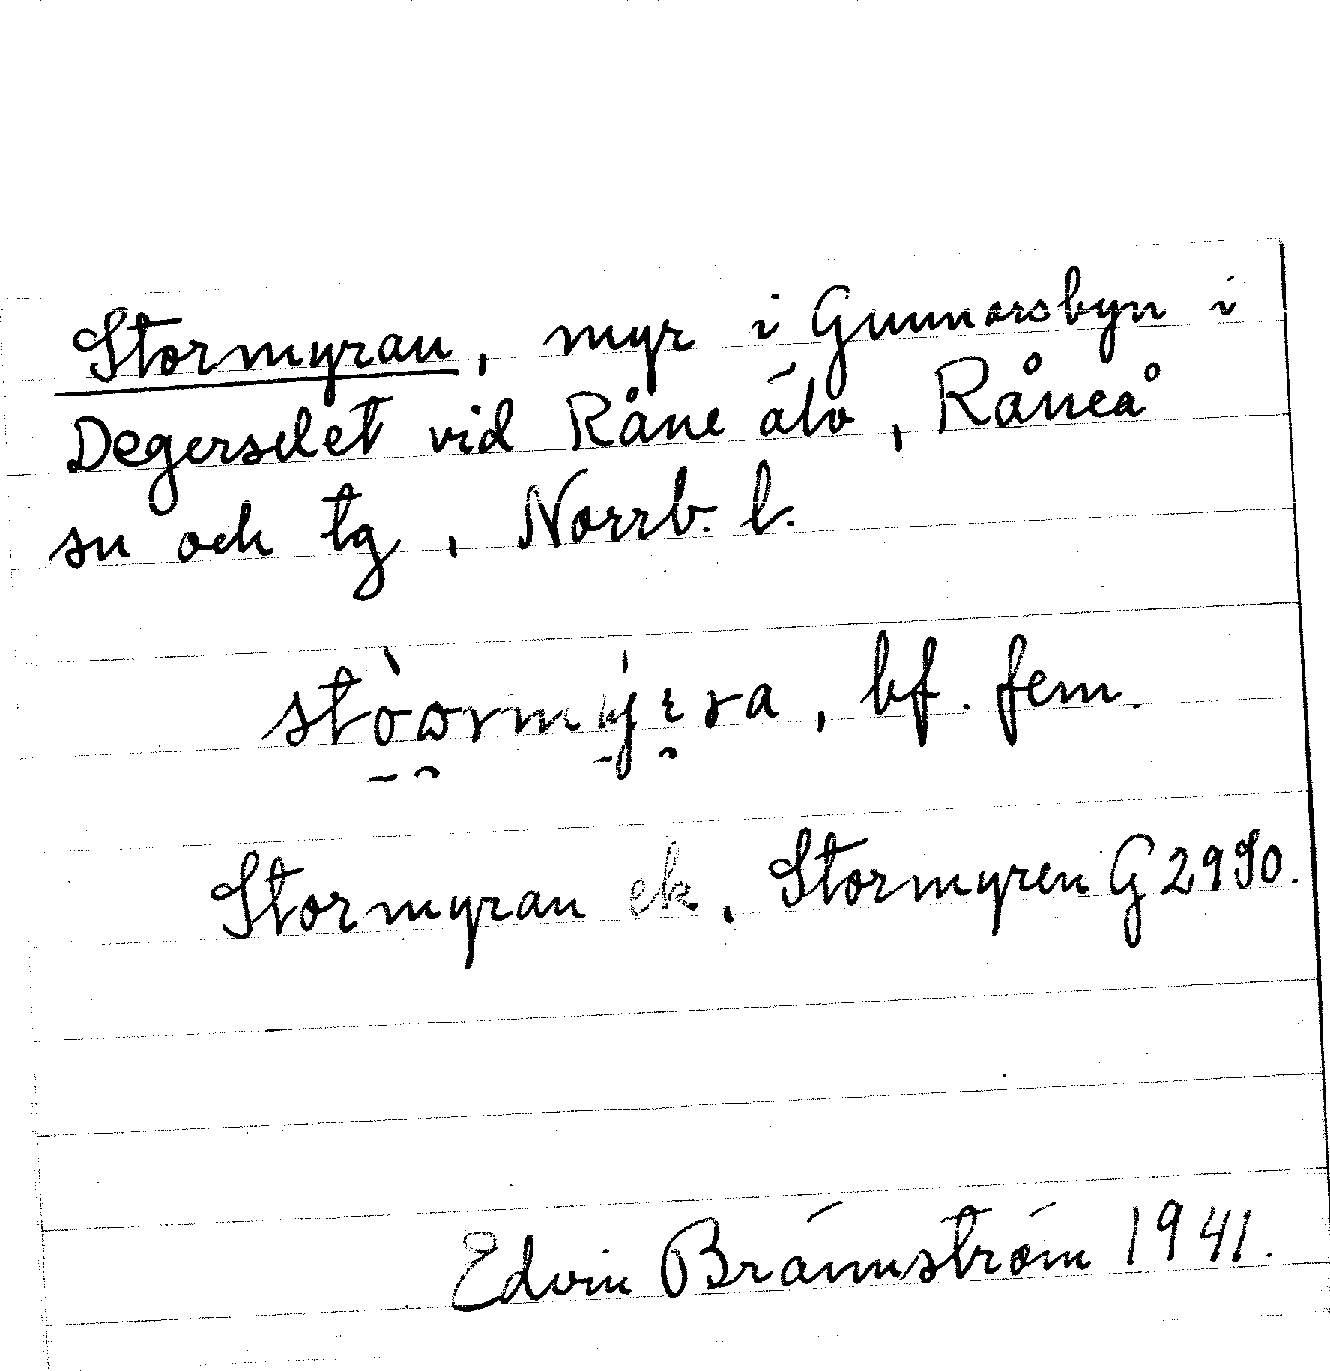 Stormyran, myr i Gunnarsbyn i
Degerselet vid Råne älv, Råneå
sn och tg, Norrb. l.
stòɷrmýɛra, bf. fem.
Stormyran ek, Stormyren G 2990.
Edvin Brännström 1941.